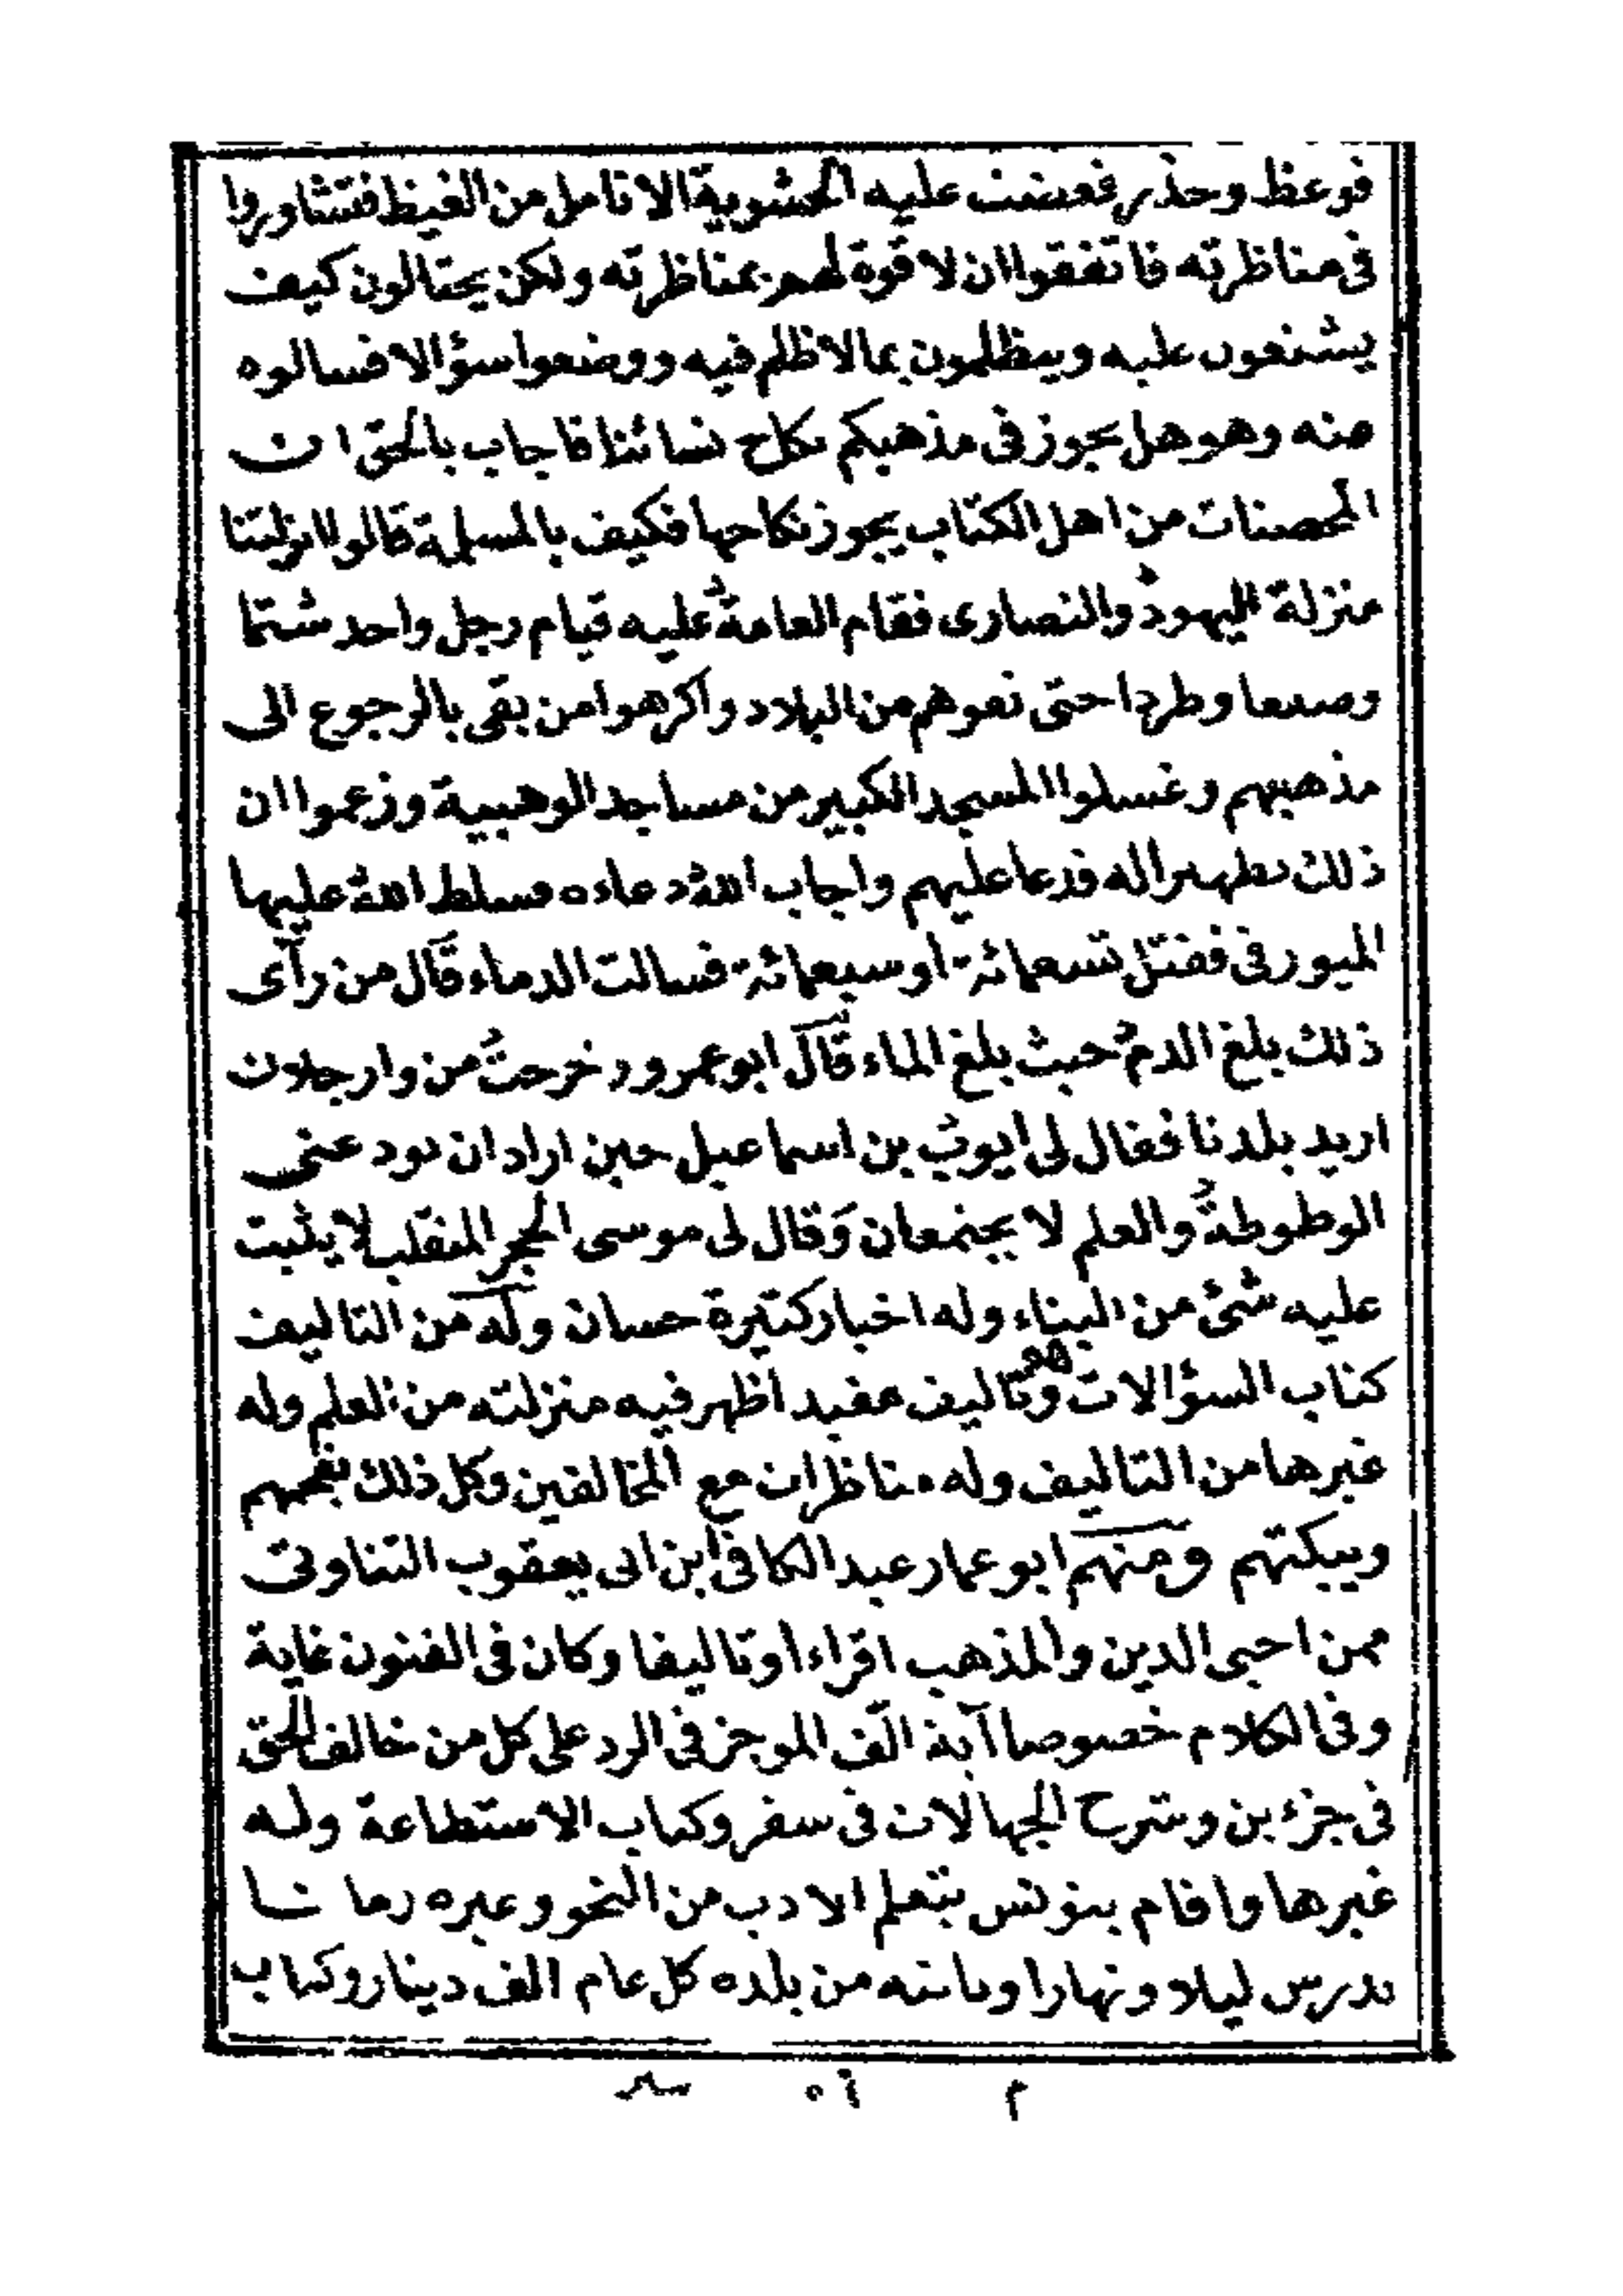 فوعظ وحذر فعضت عليه الحشوية الانامل من الغيظ فتشاوروا
فى مناظرته فاتفقوا ان لا قوة لهم بمناظرته ولكن يحتالون كيف
يشنعون عليه ويتظلمون بمالا ظلم فيه ووضعوا سؤالا فسالوه
عنه وهو هل يجوز فى مذهبكم نكاح نسائنا فاجاب بالحق ان
المحصنات من اهل الكتاب يجوز نكاحها فكيف بالمسلمة قالوا انزلتنا
منزلة اليهود والنصارى فقام العامة عليه قيام رجل واحد شتما
وصفعا وطردا حتى نفوهم من البلاد واكرهوا من بقى بالرجوع الى
مذهبهم وغسلوا المسجد الكبير من مساجد الوهبية وزعموا ان
ذلك تطهيرا له فدعا عليهم واجاب اللهُ دعاءه فسلط اللهُ عليها
الميورقى فقتل تسعمائة او سبعمائة فسالت الدماء قال من رآى
ذلك بلغ الدمُ حيث بلغ الماء قال ابو عمرو وخرجتُ من وارجلان
اريد بلدنا فقال لى ايوبُ بن اسماعيل حين اراد ان يودعنى
الوطوطةُ والعلم لا يجتمعان وَقال لى موسى الحجر المنقلب لا يثبت
عليه شئ من البناء وله اخبار كثيرة حسان وله من التاليف
كتاب السؤالات وهو تاليف مفيد اظهر فيه منزلته من العلم وله
غيرها من التاليف وله مناظرات مع المخالفين وكل ذلك يفحمهم
ويبكتهم ومنهم ابو عمار عبد الكافى ابن ابى يعقوب التناوتى
ممن احيى الدين والمذهب اقراءا وتاليفا وكان فى الفنون غاية
وفى الكلام خصوصا آية الّف الموجز فى الرد على كل من خالف الحق
فى جزءين وشرح الجهالات فى سفر وكتاب الاستطاعة وله
غيرها واقام بتونس يتعلم الادب من النحو وغيره زمانا
يدرس ليلا ونهارا وياتيه من بلده كل عام الف دينار وكتاب
م ٥٦ سير